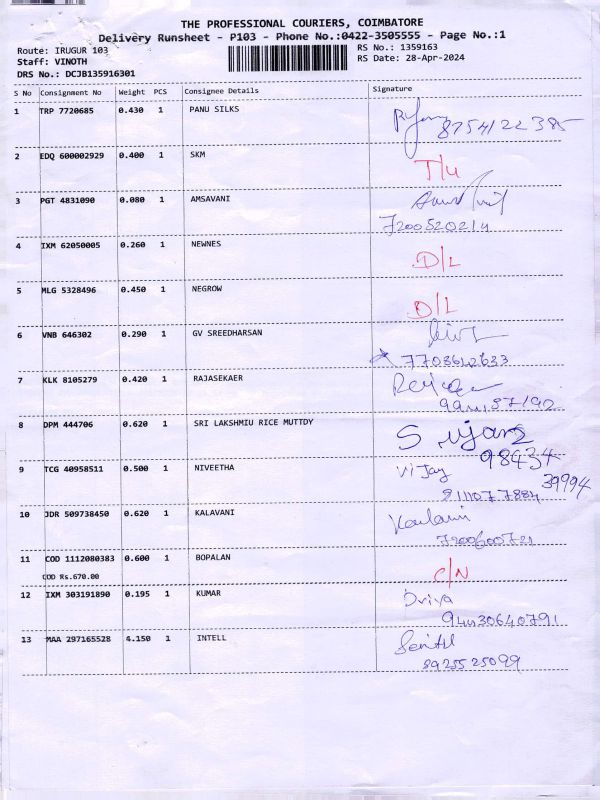 THE PROFESSIONAL COURIERS, COIMBATORE
Delivery Runsheet - P103 - Phone No.:0422-3505555 - Page No.:1
Route: IRUGUR 103
RS No.: 1359163
Staff: VINOTH
RS Date: 28-Apr-2024
DRS No.: DCJB135916301
S No Consignment No Weight PCS Consignee Details Signature
1 TRP 7720685 0.430 1 PANU SILKS
8754122385
2 EDQ 600002929 0.400 1 SKM
T/U
3 PGT 4831090 0.080 1 AMSAVANI
7200520214
4 IXM 62050005 0.260 1 NEWNES
D/L
5 MLG 5328496 0.450 1 NEGROW
D/L
6 VNB 646302 0.290 1 GV SREEDHARSAN
7703642633
7 KLK 8105279 0.420 1 RAJASEKAER
8 DPM 444706 0.620 1 SRI LAKSHMIU RICE MUTTDY
98434
39994
9 TCG 40958511 0.500 1 NIVEETHA
Vijay
10 JDR 509738450 0.620 1 KALAVANI
7200600721
11 COD 1112080383 0.600 1 BOPALAN
COD Rs.670.00
C/N
12 IXM 303191890 0.195 1 KUMAR
Priya
13 MAA 297165528 4.150 1 INTELL
Senthil
8925525099